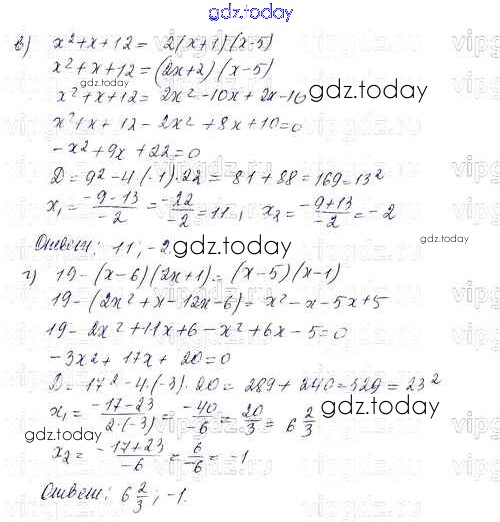 gdz.today
в) x²+x+12 = 2(x+1)(x-5)
x²+x+12 = (2x+2)(x-5)
x²+x+12 = 2x²-10x+2x-10
x²+x+12-2x²+8x+10=0
-x²+9x+22=0
D = 9²-4·(-1)·22 = 81+88=169=13²
x₁ = (-9-13)/(-2) = (-22)/(-2) = 11; x₂ = (-9+13)/(-2) = -2
Ответ: 11; -2.
г) 19-(x-6)(2x+1)=(x-5)(x-1)
19-(2x²+x-12x-6)=x²-x-5x+5
19-2x²+11x+6-x²+6x-5=0
-3x²+17x+20=0
D = 17²-4·(-3)·20 = 289+240=529=23²
x₁ = (-17-23)/(2·(-3)) = (-40)/(-6) = 20/3 = 6 2/3
x₂ = (-17+23)/(-6) = 6/(-6) = -1
Ответ: 6 2/3; -1.